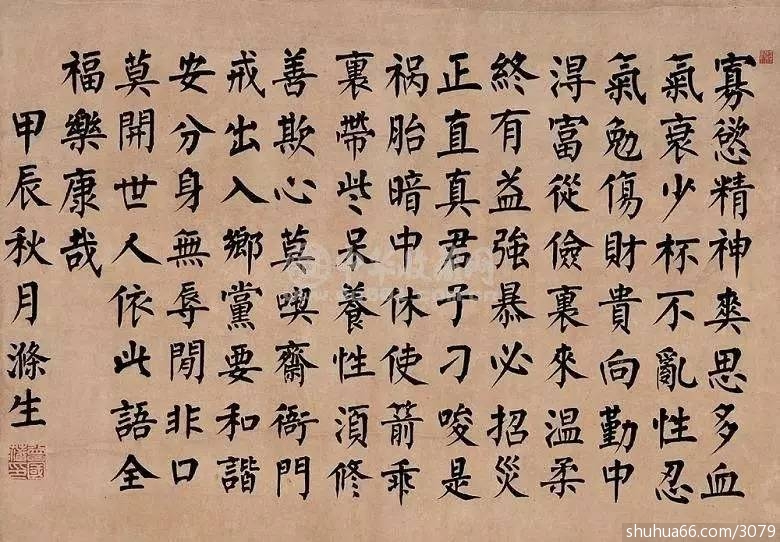 寡慾精神爽思多血
氣衰少杯不亂性忍
氣勉傷財貴向勤中
淂富從儉裏來温柔
終有益強暴必招災
正直真君子刁唆是
禍胎暗中休使箭乖
裏帶些呆養性湏修
善欺心莫喫齋衙門
戒出入鄉黨要和諧
安分身無辱閒非口
莫開世人依此語全
福樂康哉
甲辰秋月滌生
shuhua66.com/3079